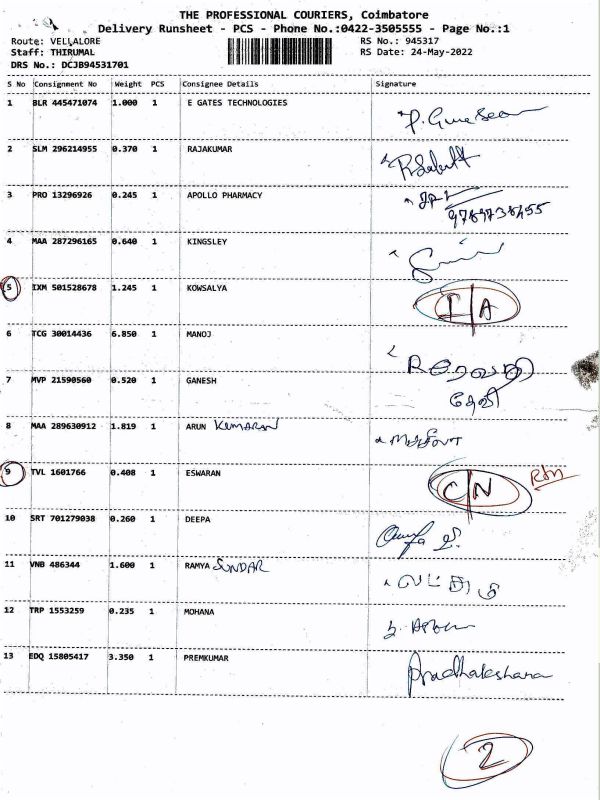 THE PROFESSIONAL COURIERS, Coimbatore
Delivery Runsheet - PCS - Phone No.:0422-3505555 - Page No.:1
Route: VELLALORE RS No.: 945317
Staff: THIRUMAL RS Date: 24-May-2022
DRS No.: DCJB94531701
S No Consignment No Weight PCS Consignee Details Signature
1 BLR 445471074 1.000 1 E GATES TECHNOLOGIES
2 SLM 296214955 0.370 1 RAJAKUMAR
3 PRO 13296926 0.245 1 APOLLO PHARMACY
4 MAA 287296165 0.640 1 KINGSLEY
5 IXM 501528678 1.245 1 KOWSALYA I/A
6 TCG 30014436 6.850 1 MANOJ
7 MVP 21590560 0.520 1 GANESH தேவி
8 MAA 289630912 1.819 1 ARUN KUMARAN
9 TVL 1601766 0.408 1 ESWARAN C/N Rtn
10 SRT 701279038 0.260 1 DEEPA
11 VNB 486344 1.600 1 RAMYA SUNDAR
12 TRP 1553259 0.235 1 MOHANA
13 EDQ 15805417 3.350 1 PREMKUMAR Pradhakshana
2